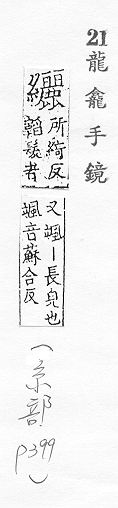 21 龍龕手鏡
纚
所綺反
韜髮者
又颯丨長皃也
颯音蘇合反
(糸部 p399)